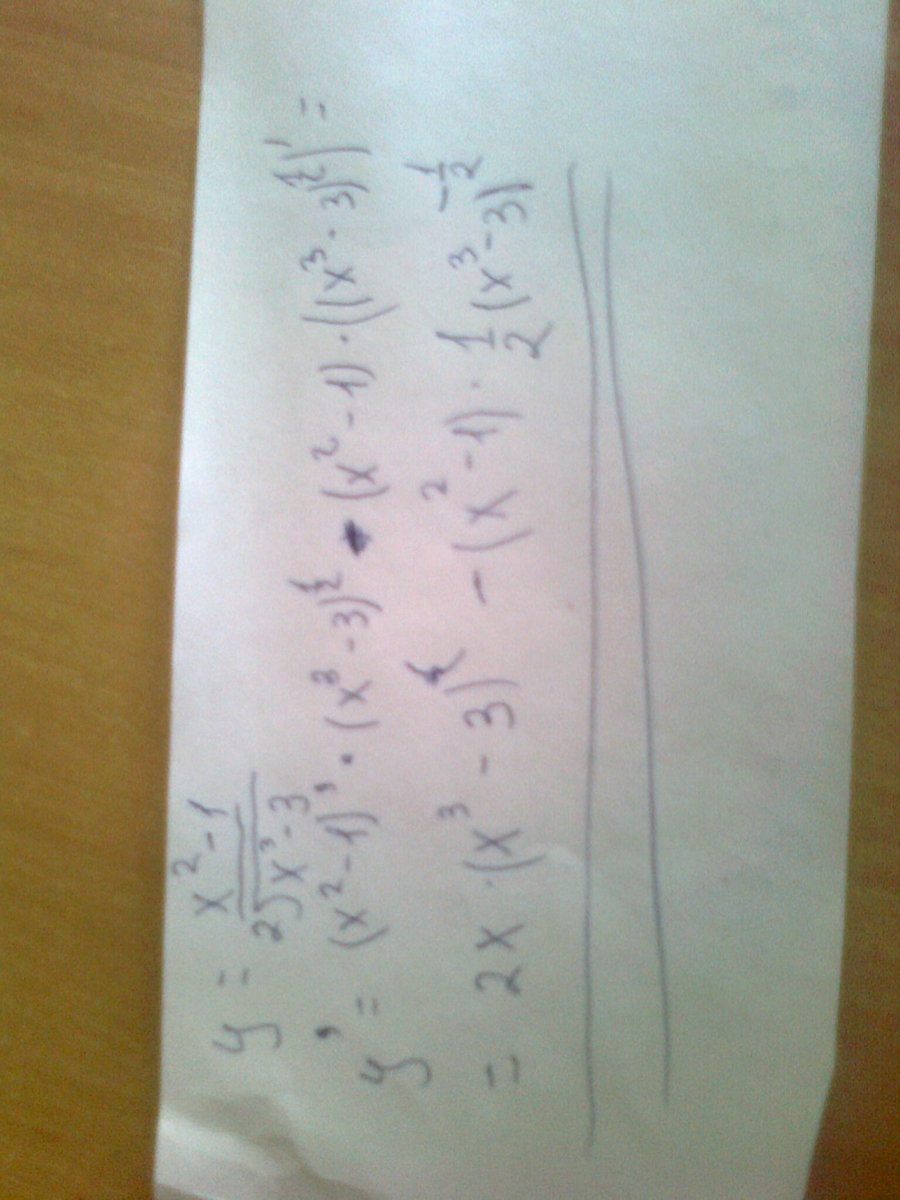 y = \frac{x^2-1}{2\sqrt{x^3-3}}
y' = (x^2-1)' \cdot (x^3-3)^{\frac{1}{2}} - (x^2-1) \cdot ((x^3-3)^{\frac{1}{2}})' =
= 2x \cdot (x^3-3)^{\frac{1}{2}} - (x^2-1) \cdot \frac{1}{2}(x^3-3)^{-\frac{1}{2}}